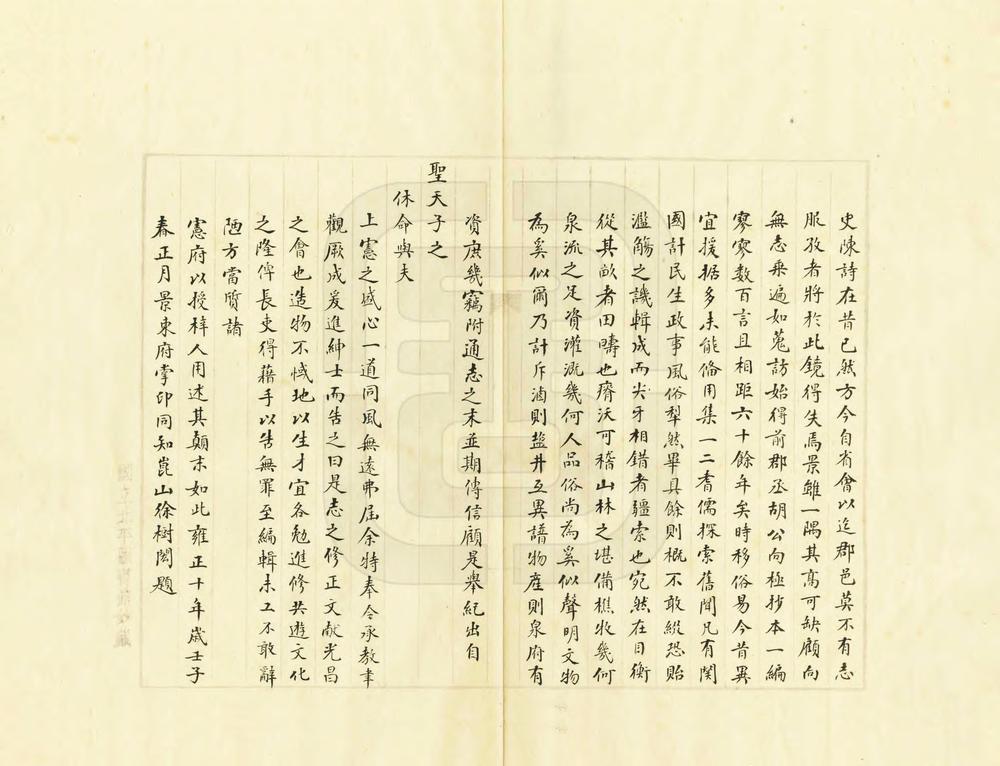 史陳詩在昔已然方今自省會以迄郡邑莫不有志
服孜者將於此鏡得失焉景雖一隅其寫可缺顧向
無志乘遍如蒐訪始得前郡丞胡公向極抄本一編
寥寥数百言且相距六十餘年矣時移俗易今昔異
宜援据多未能偹用集一二耆儒探索舊聞凡有関
國計民生政事風俗犁然畢具餘則概不敢縱恐貽
濫觴之譏輯成而犬牙相錯者疆索也宛然在目衡
從其畝者田疇也瘠沃可稽山林之堪備樵牧幾何
泉流之足資灌溉幾何人品俗尚為奚似聲明文物
為奚似爾乃計斥滷則盐井互異譜物産則泉府有
資庶幾竊附通志之末並期傳信顧是舉紀出自
聖天子之
休命與夫
上憲之盛心一道同風無遠弗届余特奉令承教聿
觀厥成爰進紳士而告之曰是志之修正文献光昌
之會也造物不惐地以生才宜各勉進修共遊文化
之隆俾長吏得藉手以告無罪至編輯未工不敢辭
陋方當质諸
憲府以授梓人用述其顛末如此雍正十年歲壬子
春正月景東府掌印同知崑山徐樹閎題